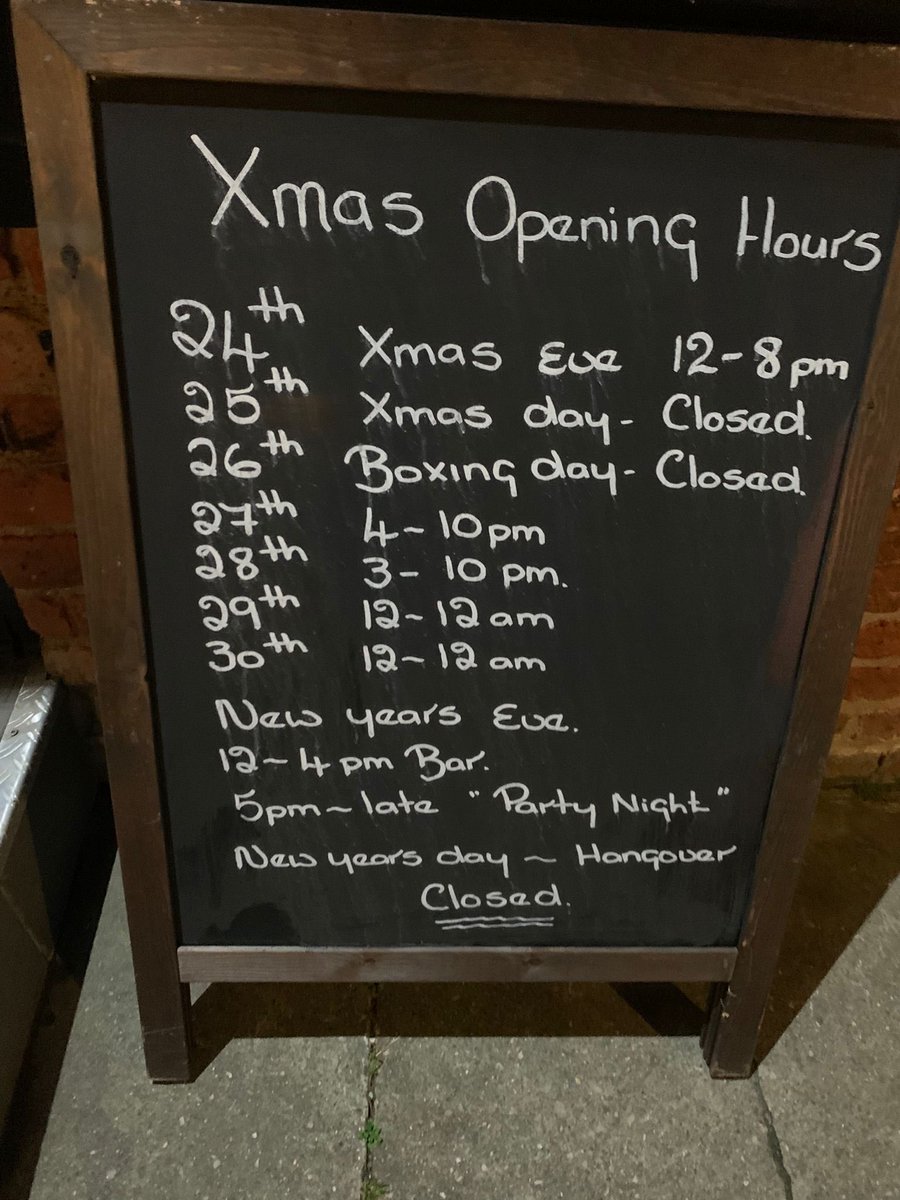 Xmas Opening Hours
24th Xmas Eve 12-8pm
25th Xmas day - Closed.
26th Boxing day - Closed.
27th 4-10pm
28th 3-10 pm.
29th 12-12am
30th 12-12am
New years Eve.
12-4pm Bar.
5pm~late "Party Night"
New years day ~ Hangover
Closed.